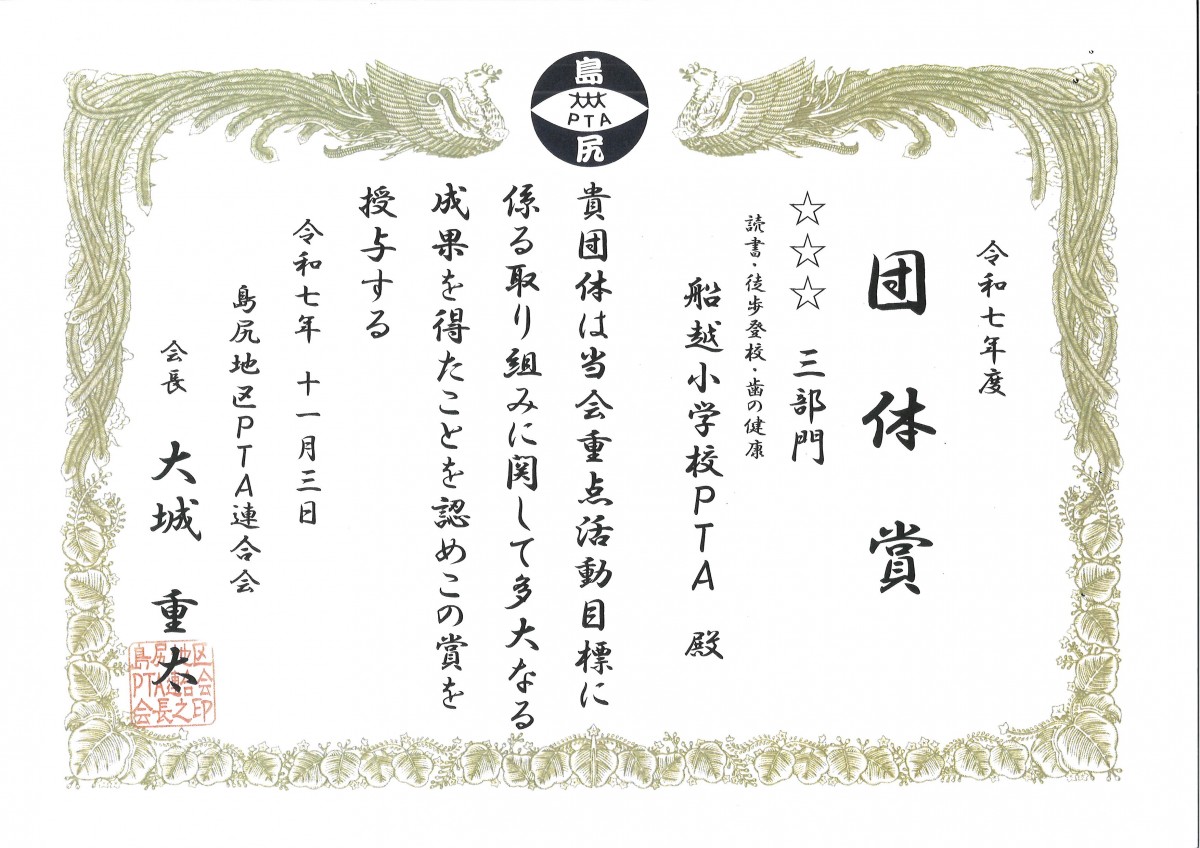 島
PTA
尻
令和七年度
団体賞
☆☆☆ 三部門
読書・徒歩登校・歯の健康
船越小学校PTA 殿
貴団体は当会重点活動目標に
係る取り組みに関して多大なる
成果を得たことを認めこの賞を
授与する
令和七年 十一月三日
島尻地区PTA連合会
会長 大城 重太
島尻地区
PTA連合会
会長之印